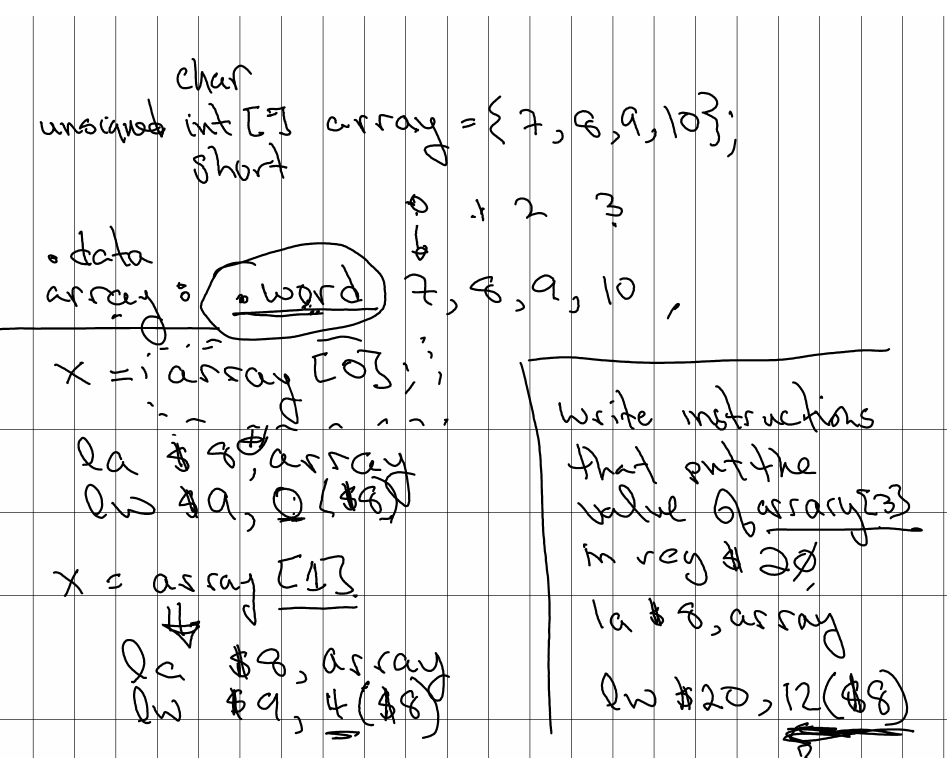 char
unsigned int [] array = {7, 8, 9, 10};
short
0 1 2 3
.data
array: .word 7, 8, 9, 10,
x = array [0];
la $8, array
lw $9, 0($8)
x = array [1]
la $8, array
lw $9, 4($8)
write instructions
that put the
value of array[3]
in reg $20
la $8, array
lw $20, 12($8)